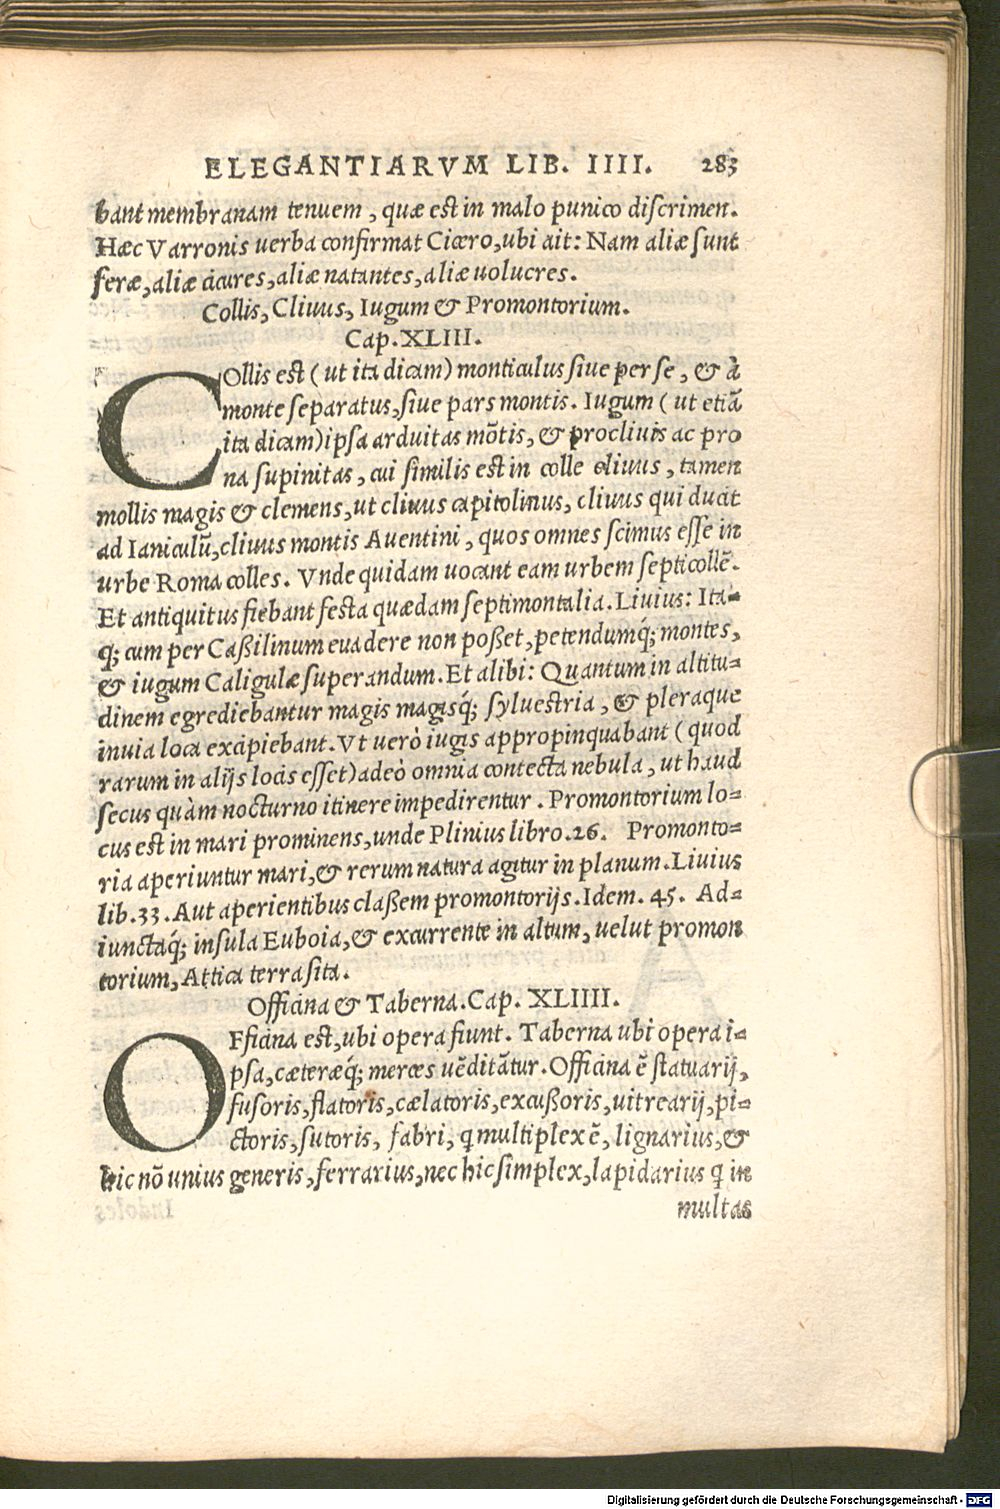 ELEGANTIARVM LIB. IIII. 283
bant membranam tenuem, quæ est in malo punico discrimen.
Hæc Varronis uerba confirmat Cicero, ubi ait: Nam aliæ sunt
feræ, aliæ cicures, aliæ natantes, aliæ uolucres.
Collis, Cliuus, Iugum & Promontorium.
Cap. XLIII.
COllis est (ut ita dicam) monticulus siue per se, & à
monte separatus, siue pars montis. Iugum (ut etiã
ita dicam) ipsa arduitas mõtis, & procliuis ac pro
na supinitas, cui similis est in colle cliuus, tamen
mollis magis & clemens, ut cliuus capitolinus, cliuus qui ducit
ad Ianiculũ, cliuus montis Auentini, quos omnes scimus esse in
urbe Roma colles. Vnde quidam uocant eam urbem septicollẽ.
Et antiquitus fiebant festa quædam septimontalia. Liuius: Ita-
q́; cum per Caßilinum euadere non poßet, petendumq́; montes,
& iugum Caligulæ superandum. Et alibi: Quantum in altitu-
dinem egrediebantur magis magisq́; syluestria, & pleraque
inuia loca excipiebant. Vt uerò iugis appropinquabant (quod
rarum in alijs locis esset) adeò omnia contecta nebula, ut haud
secus quàm nocturno itinere impedirentur. Promontorium lo-
cus est in mari prominens, unde Plinius libro. 26. Promonto-
ria aperiuntur mari, & rerum natura agitur in planum. Liuius
lib. 33. Aut aperientibus claßem promontorijs. Idem. 45. Ad-
iunctaq́; insula Euboia, & excurrente in altum, uelut promon
torium, Attica terra sita.
Officina & Taberna. Cap. XLIIII.
OFficina est, ubi opera fiunt. Taberna ubi opera i-
psa, cæteræq́; merces uẽditãtur. Officina ẽ statuarij,
fusoris, flatoris, cælatoris, excußoris, uitrearij, pi-
ctoris, sutoris, fabri, q multiplex ẽ, lignarius, &
hic nõ unius generis, ferrarius, nec hic simplex, lapidarius q in
multas
Digitalisierung gefördert durch die Deutsche Forschungsgemeinschaft - DFG